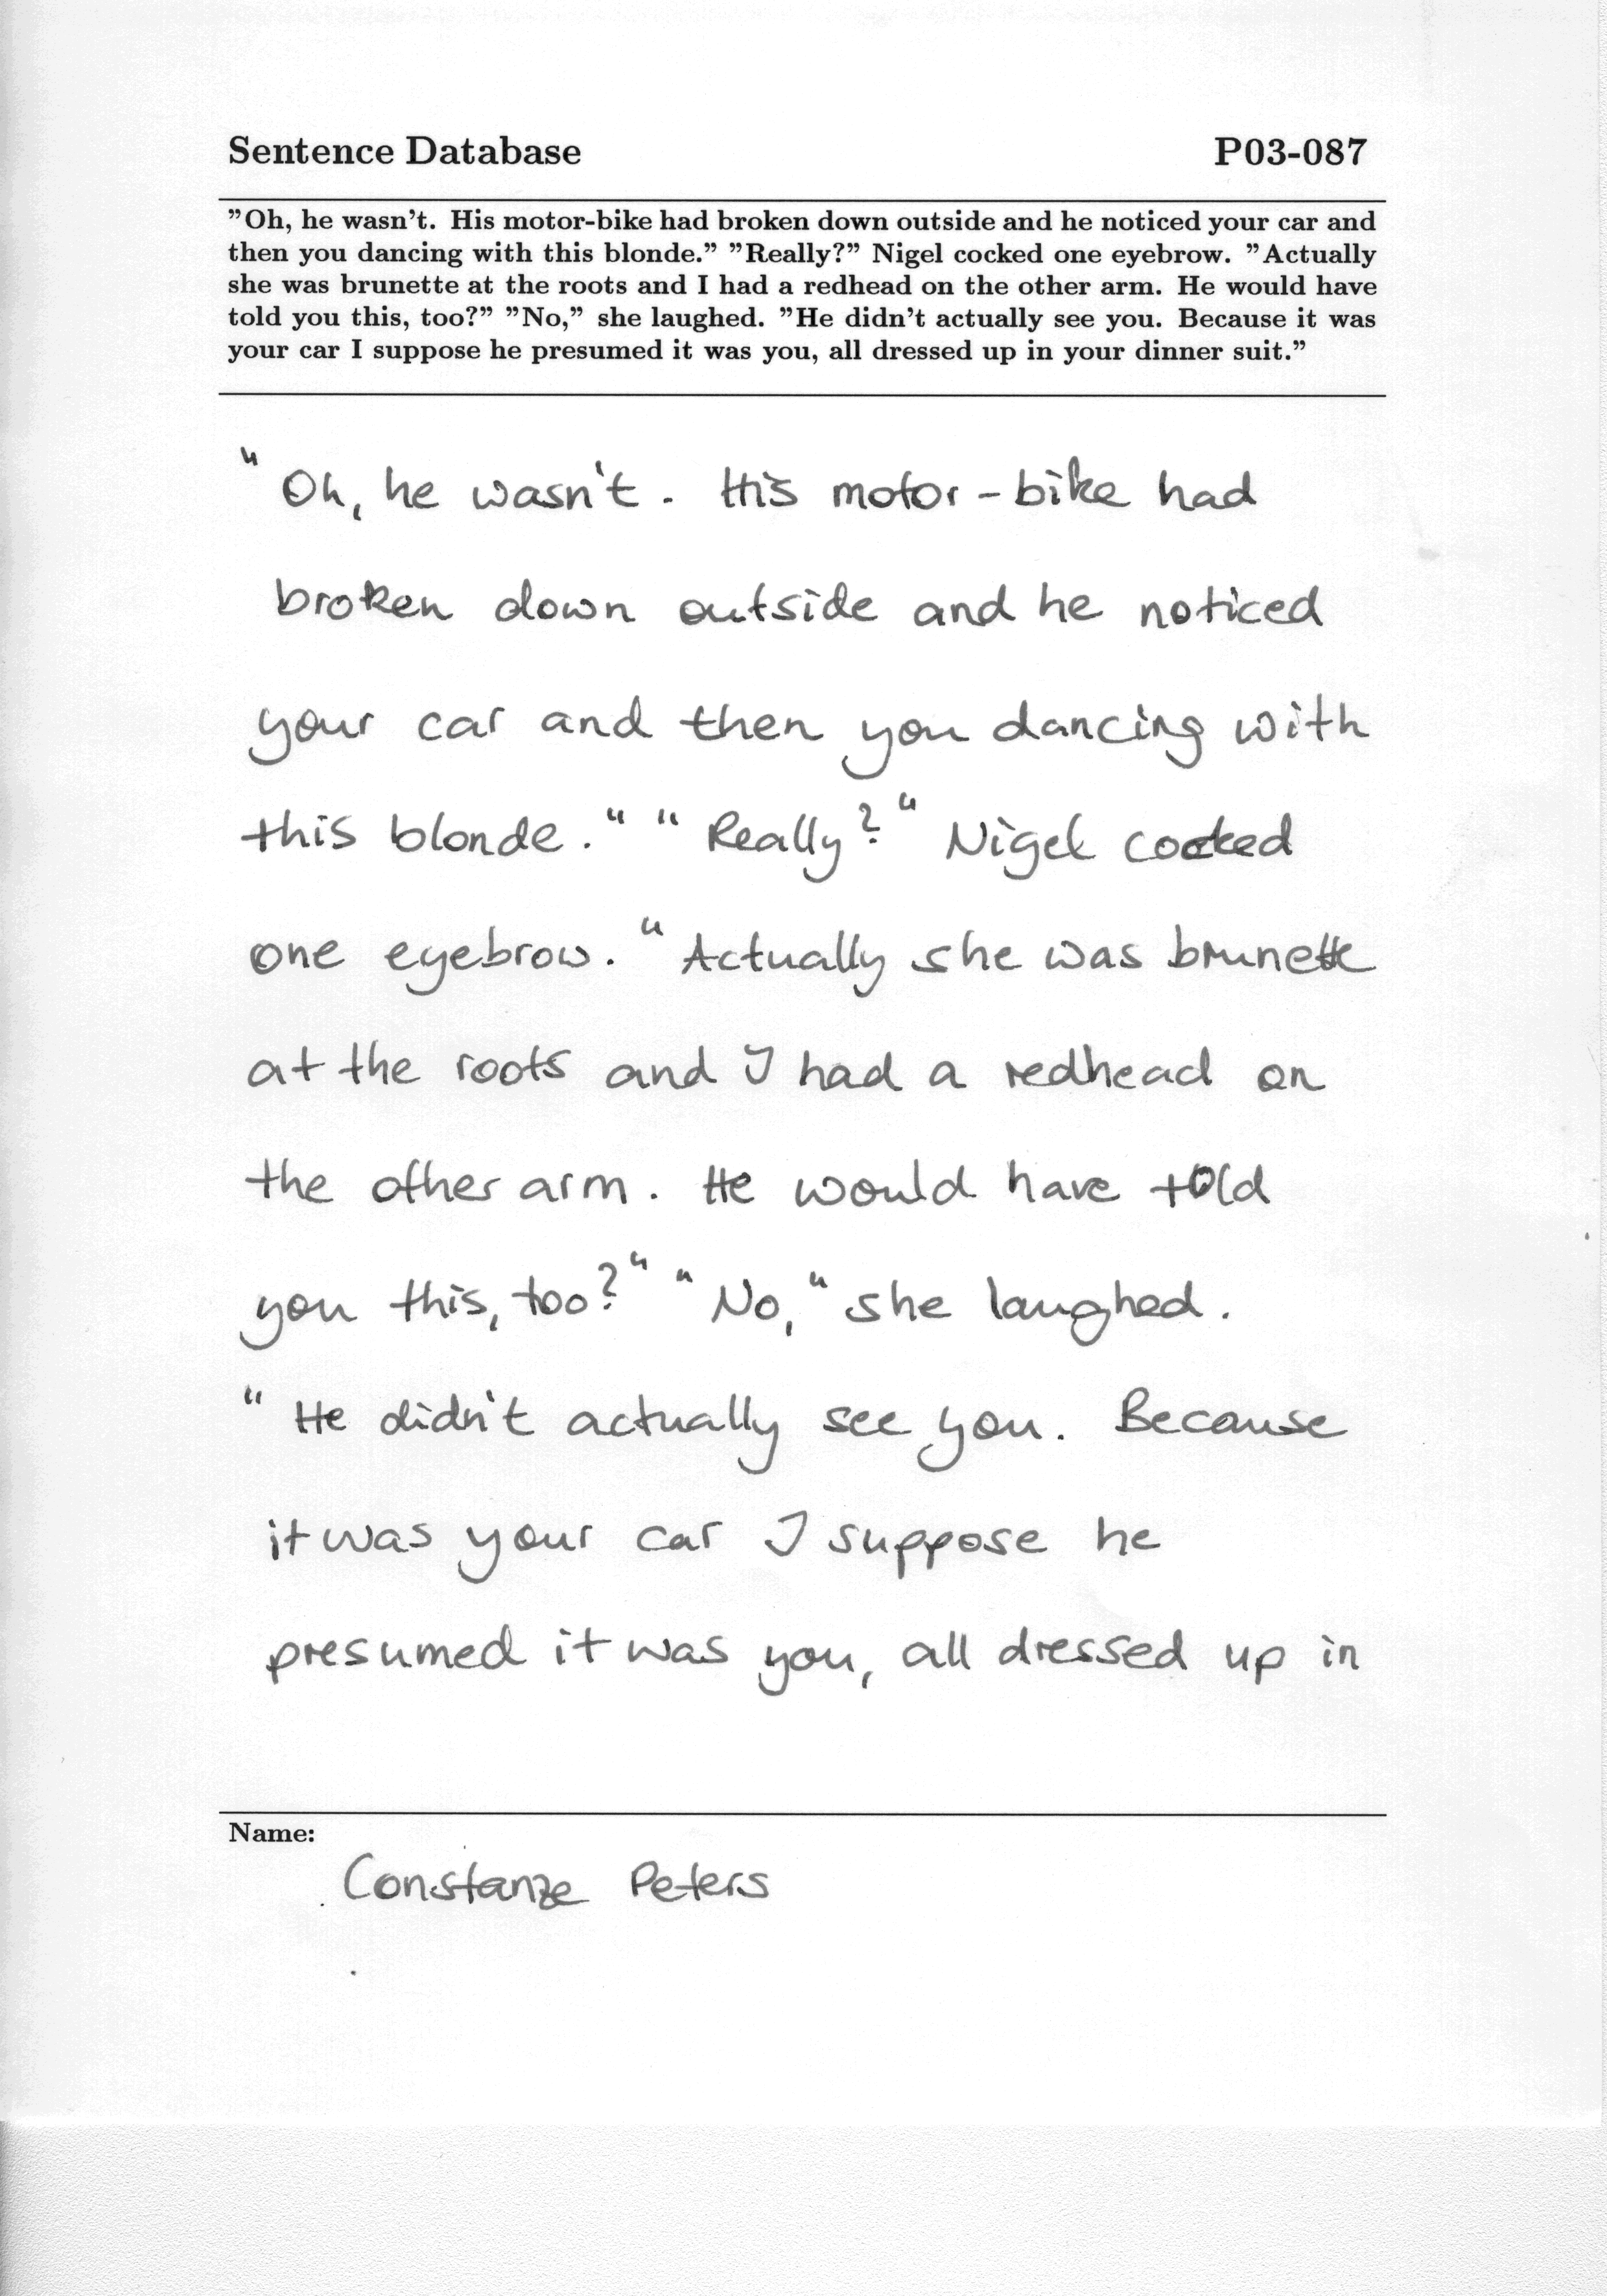 Sentence Database P03-087
"Oh, he wasn't. His motor-bike had broken down outside and he noticed your car and
then you dancing with this blonde." "Really?" Nigel cocked one eyebrow. "Actually
she was brunette at the roots and I had a redhead on the other arm. He would have
told you this, too?" "No," she laughed. "He didn't actually see you. Because it was
your car I suppose he presumed it was you, all dressed up in your dinner suit."
"Oh, he wasn't. His motor-bike had
broken down outside and he noticed
your car and then you dancing with
this blonde." "Really?" Nigel cocked
one eyebrow. "Actually she was brunette
at the roots and I had a redhead on
the other arm. He would have told
you this, too?" "No," she laughed.
"He didn't actually see you. Because
it was your car I suppose he
presumed it was you, all dressed up in
Name:
Constanze Peters